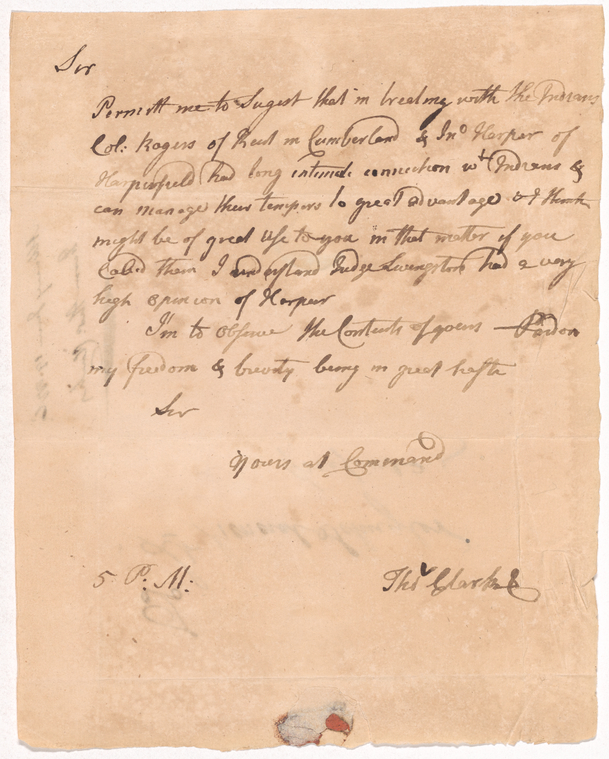 Sir
Permitt me to Sugest that in treating with the Indians
Col: Rogers of Kent in Cumberland & Jno Harper of
Harpersfield had long intimate connection wt Indians &
can manage their tempers to great advantage & I think
might be of great Use to you in that matter if you
Called them I understand Judge Livingston had a very
high opinion of Harper
I'm to observe the Contents of yours — Pardon
my freedom & brevity being in great haste
Sir
Yours at Command
5 P. M:
Thos Clarke